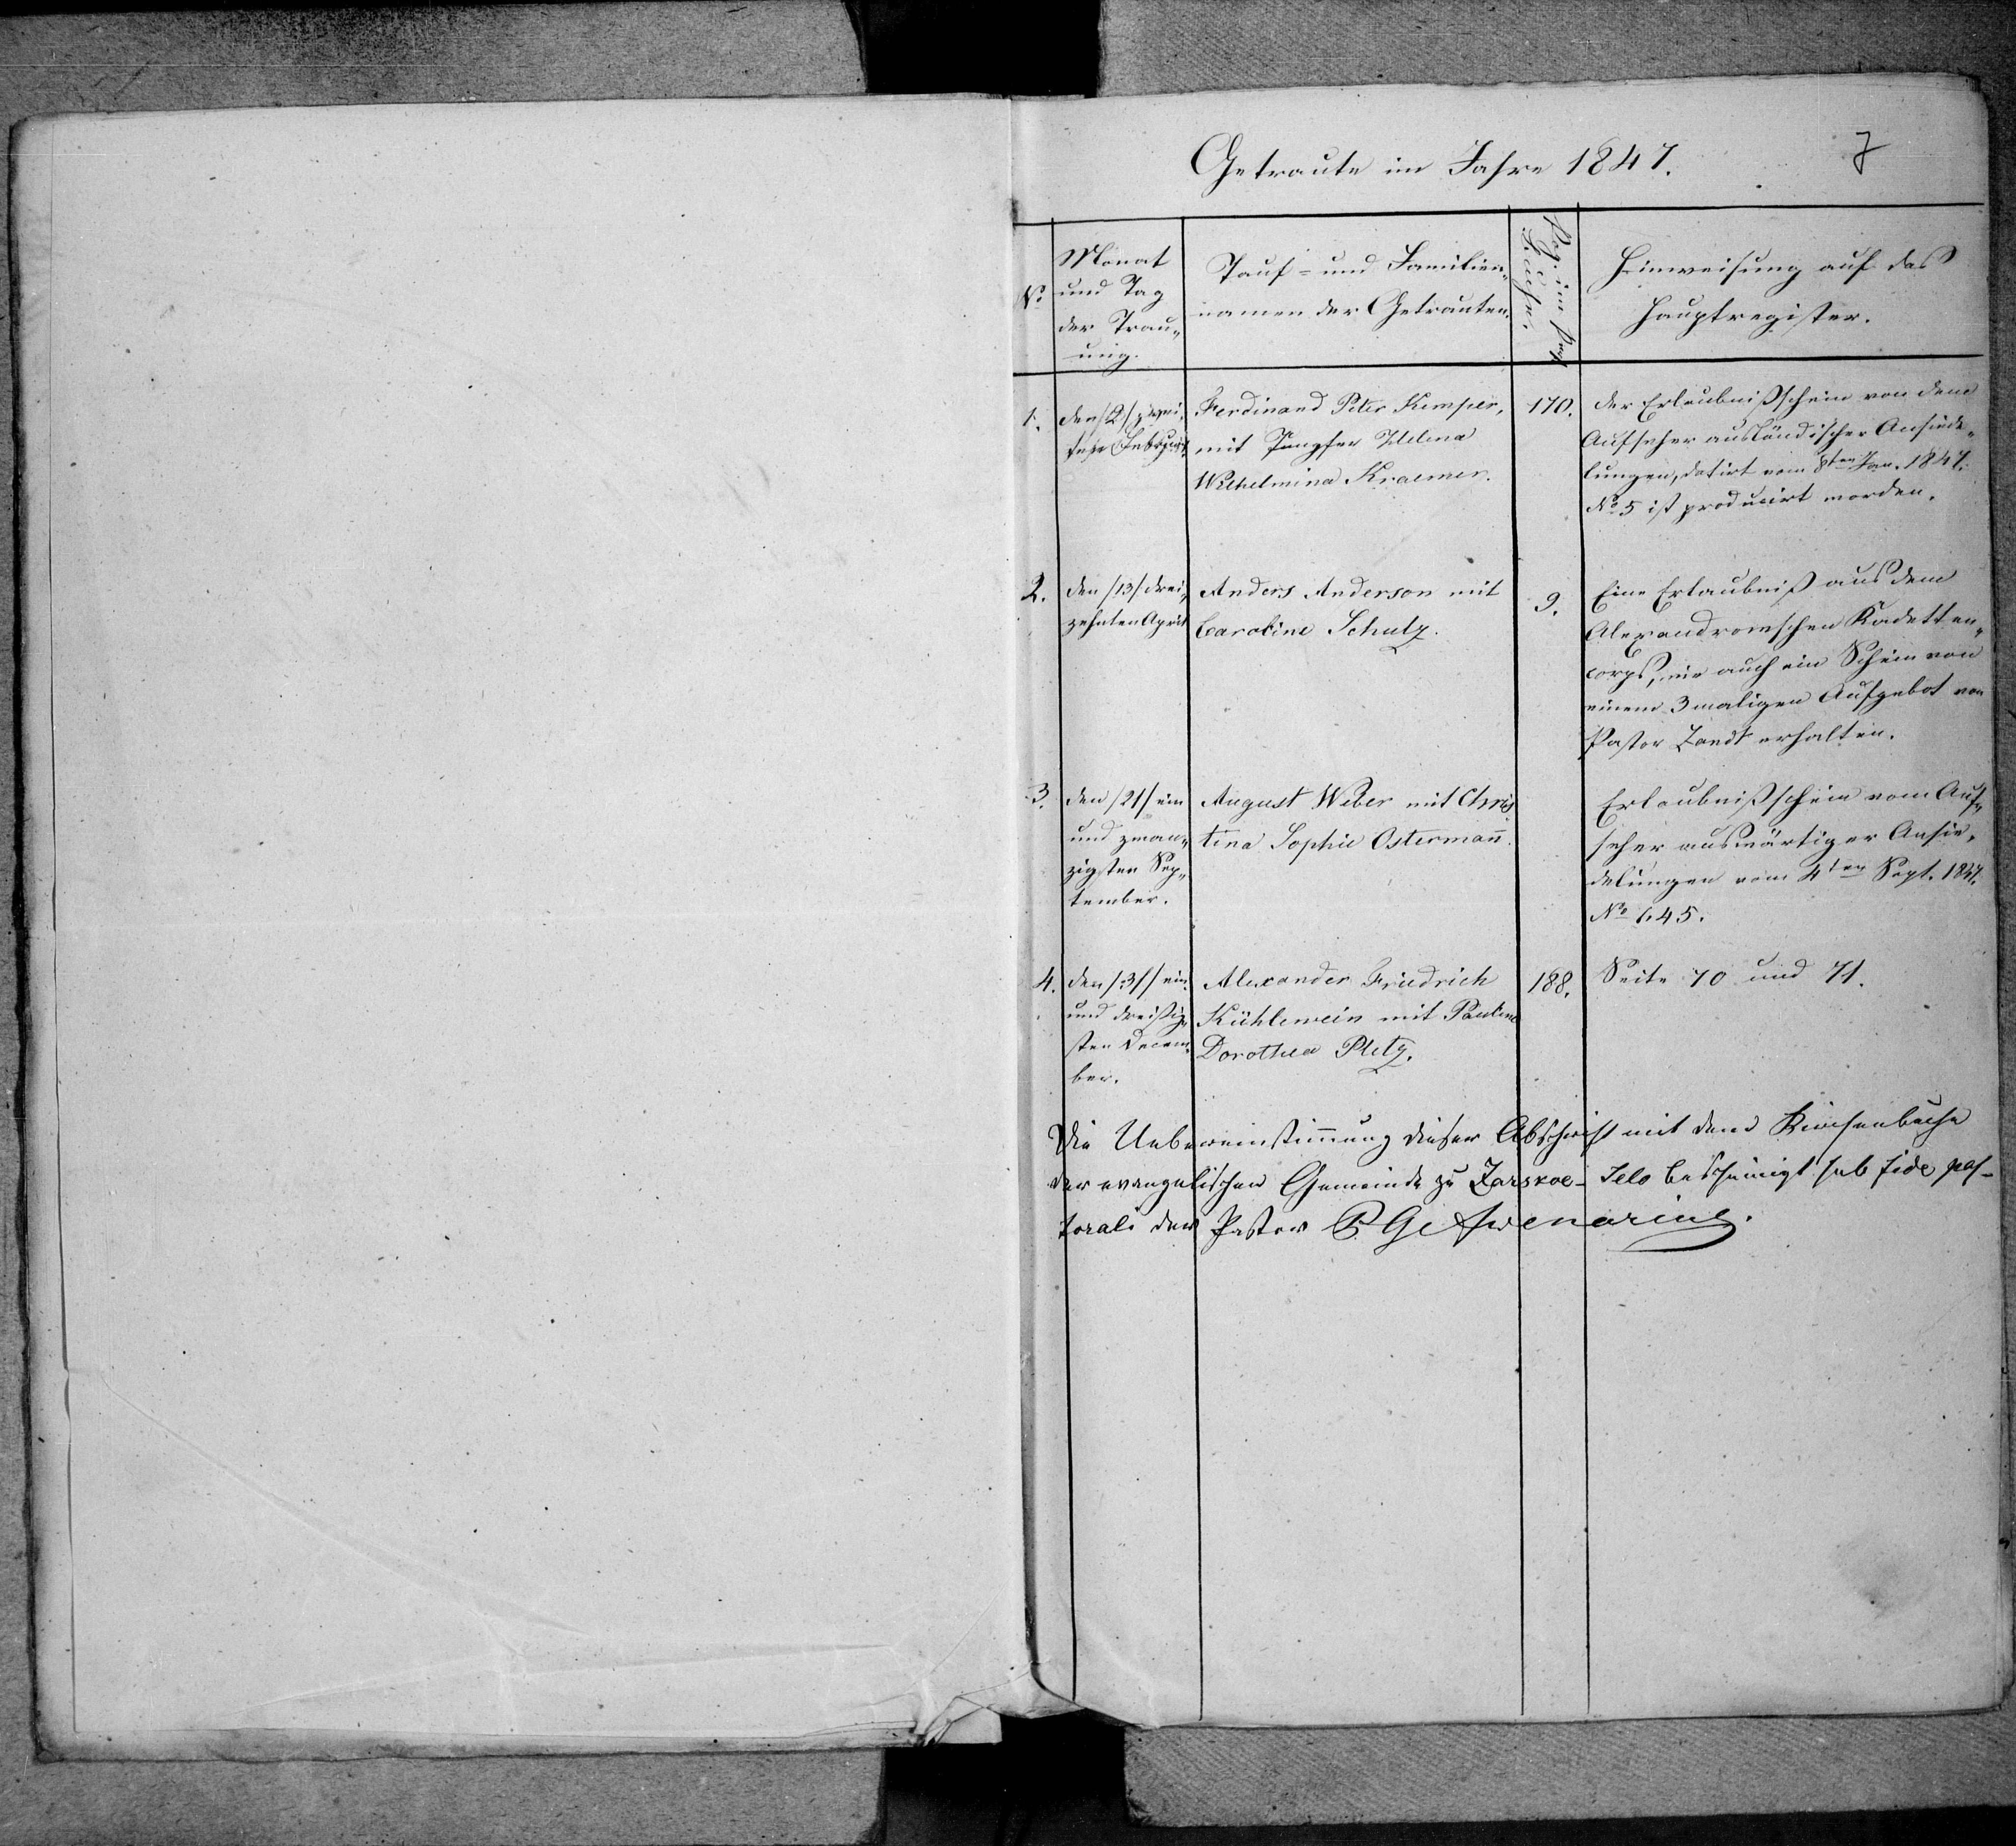 7
Getraute im Jahre 1847.
№
Monat
und Tag
der Trau„
ung.
Tauf- und Familien„
namen der Getrauten.
Pag. im
Buche.
Hinweisung auf das
Hauptregister.
1.
den /2/ zwei„
ten Februar.
Ferdinand Peter Kemper,
mit Jungfer Helena
Wilhelmina Kraemer.
170.
Der Erlaubnißschein von dem
Aufseher ausländischer Ansiede„
lungen, datirt vom 8ten Jan. 1847.
№ 5 ist producirt worden.
2.
den /13/ drei„
zehnten April
Anders Anderson mit
Caroline Schulz.
9.
Eine Erlaubniß aus dem
Alexandrowschen Kadetten„
corps, wie auch ein Schein von
einem 3maligen Aufgebot von
Pastor Zandt erhalten.
3.
den /21/ ein
und zwan„
zigsten Sep„
tember.
August Weber mit Chris
tina Sophie Ostermañ.
Erlaubnißschein vom Auf„
seher auswärtiger Ansie„
delungen vom 4ten Sept. 1847.
№ 645.
4.
den /31/ ein
und dreißig„
sten Decem„
ber.
Alexander Friedrich
Kühlewein mit Pauline
Dorothea Pletz.
188.
Seite 70 und 71.
Die Uebereinstim̄ung dieser Abschrift mit dem Kirchenbuche
der evangelischen Gemeinde zu Zarskoe-Selo bescheinigt sub fide pas-
torali der Pastor P. G. Awenarius.